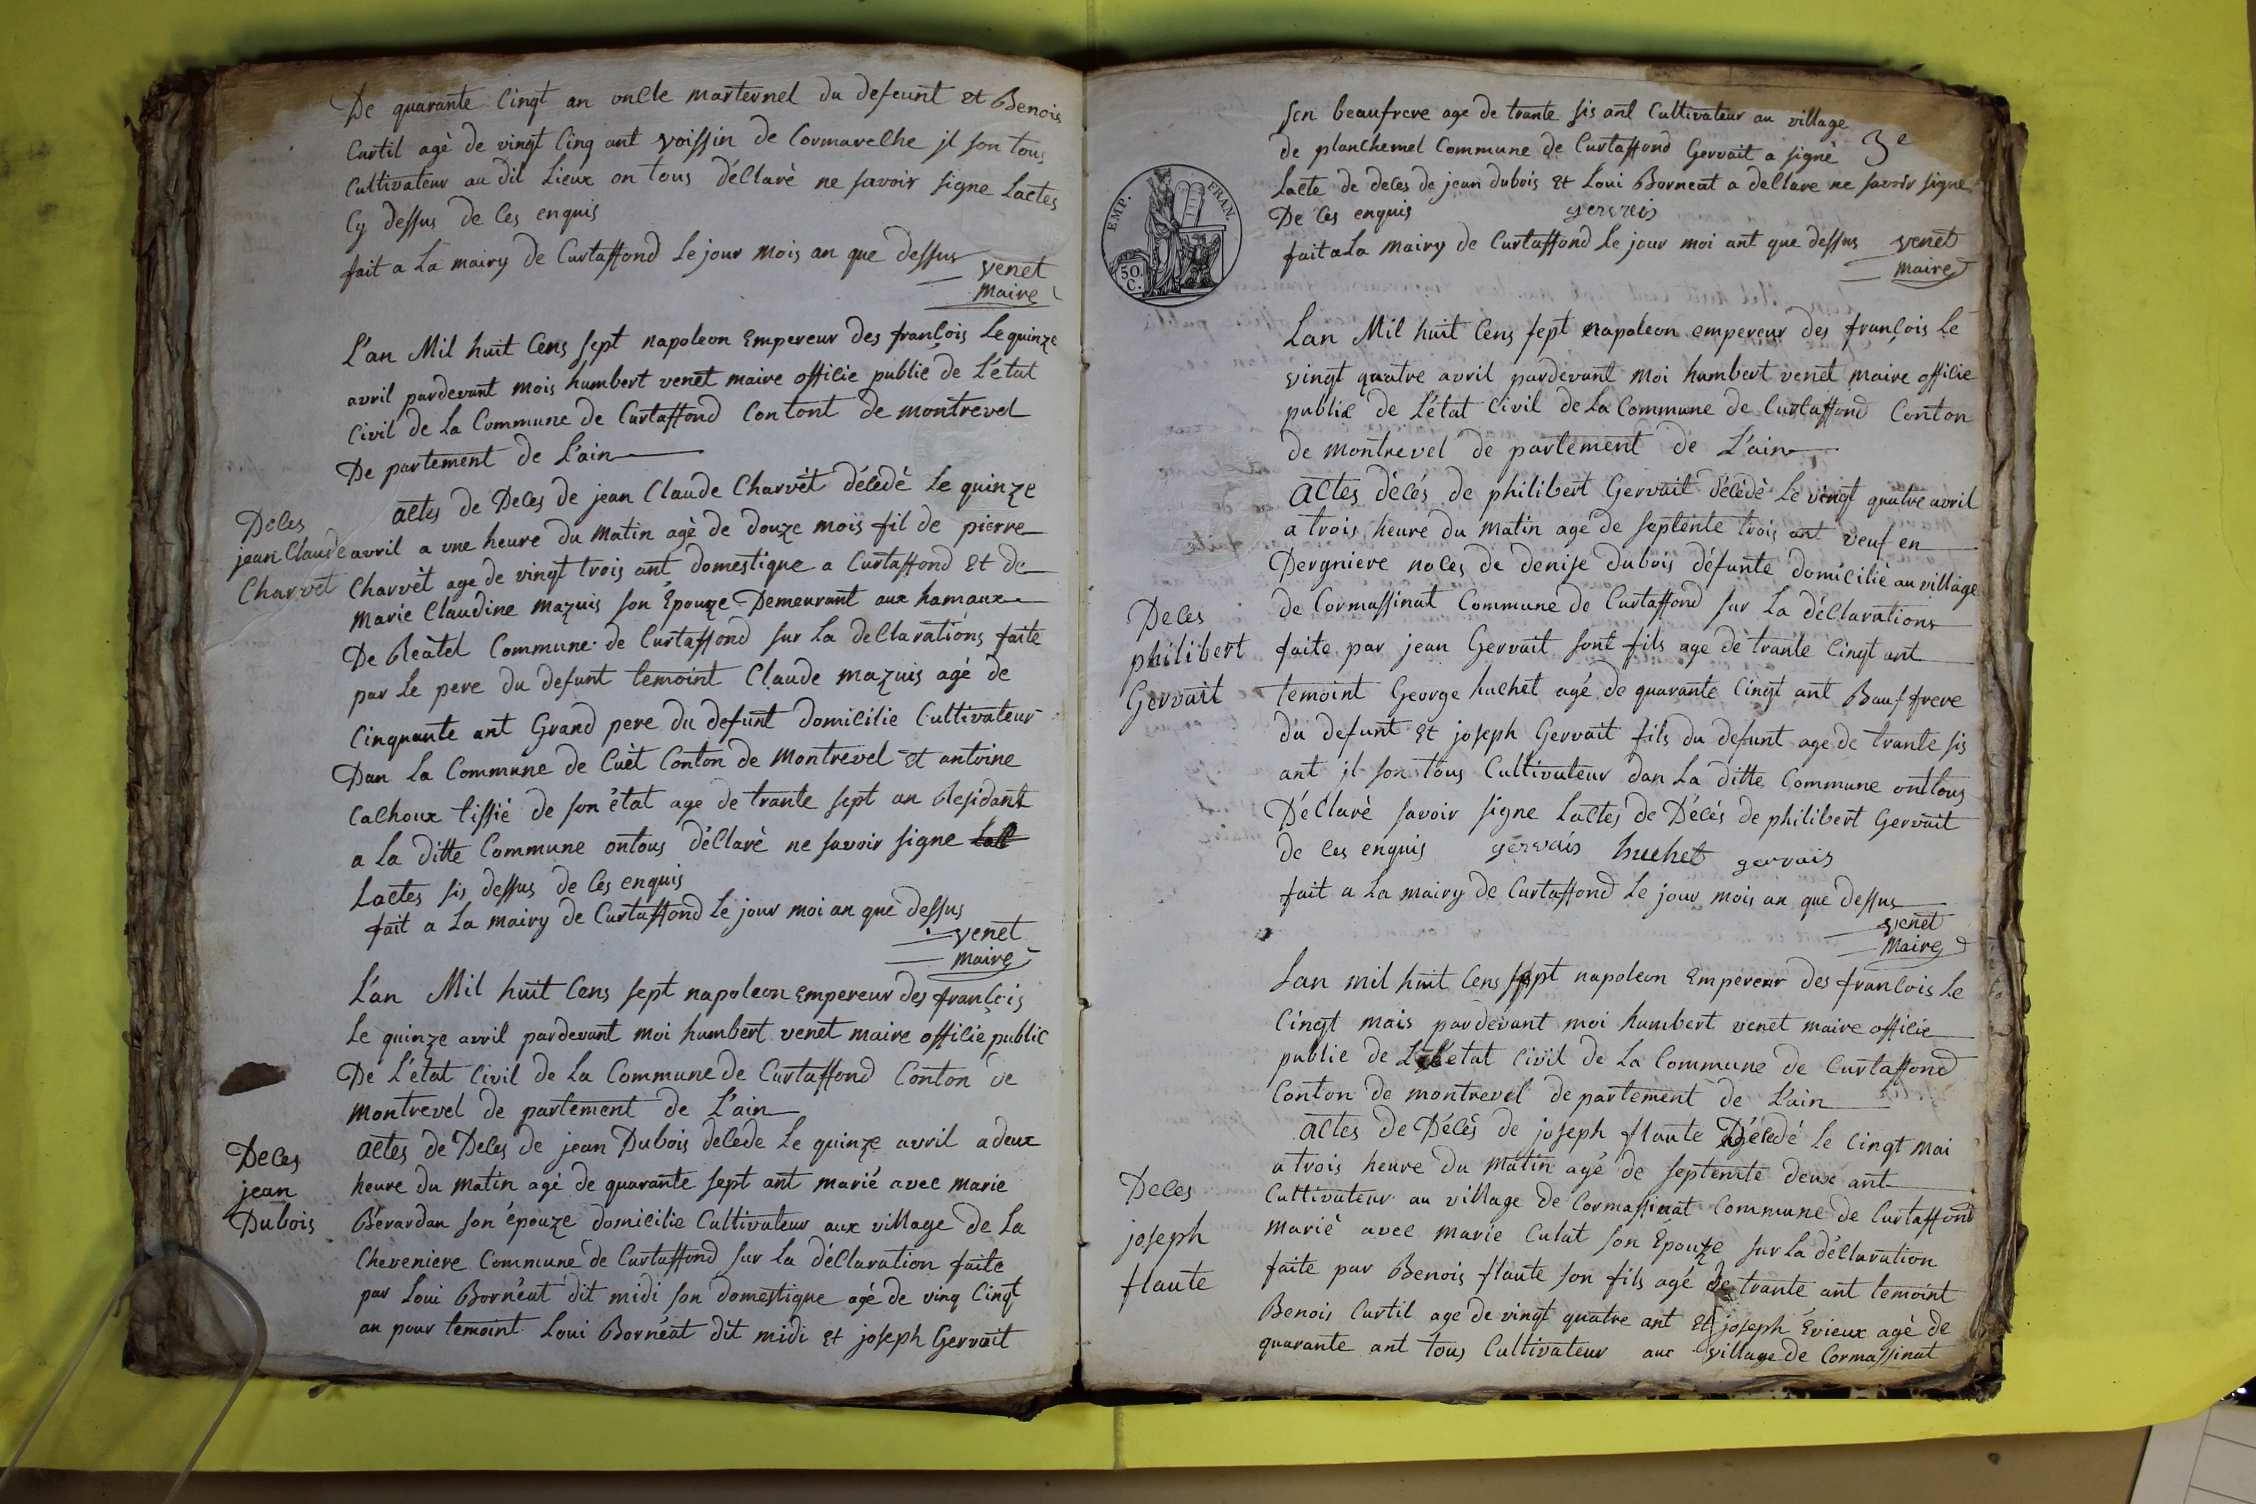 De quarante Cingt an oncle marternel du defeunt et Benois
Curtil agè de vingt Cinq ant voissin de Cormarelhe jl son tous
Cultivateur au dit Lieux on tous déClarè ne savoir signe Lactes
Cy dessus de Ces enquis
fait a La mairy de Curtaffond Le jour mois an que dessus
venet
maire
L'an Mil huit Cens sept napoleon Empereur des franCois Le quinze
avril pardevant mois humbert venet maire offiCie publiC de L'état
Civil de La Commune de Curtaffond Contont de montrevel
De partement de L'ain
DeCes
jean Claude
Charvet
aCtes de DeCes de jean Claude Charvèt déCedè Le quinze
avril a vne heure du Matin agè de douze mois fil de pierre
Charvèt age de vingt trois ant domestique a Curtaffond Et de
Marie Claudine Mazuis son Epouze Demeurant aux hamaux
De Bleatel Commune de Curtaffond sur La deClarations faite
par Le pere du defunt temoint Claude mazuis agé de
Cinquante ant Grand pere du defunt domiCilie Cultivateur
Dan La Commune de Cuèt Conton de Montrevel Et antoine
CaChoux tissié de son état age de trante sept an Residant
a La ditte Commune ontous déClarè ne savoir signe Lact
Lactes sis dessus de Ces enquis
fait a La mairy de Curtaffond Le jour moi an que dessus
venet
maire
L'an Mil huit Cens sept napoleon empereur des franCois
Le quinze avril pardevant moi humbert venet maire offiCie publiC
De L'état Civil de La Commune de Curtaffond Conton de
Montrevel de partement de L'ain
DeCes
jean
Dubois
aCtes de DeCes de jean Dubois deCede Le quinze avril a deux
heure du Matin agé de quarante sept ant marié avec marie
Bérardan son épouze domiCilie Cultivateur aux village de La
Cheveniere Commune de Curtaffond sur La déClaration faite
par Loui Bornéat dit midi son domestique agé de vinq Cinqt
an pour temoint Loui Bornéat dit midi Et joseph Gervait
son beaufrere age de trante sis ant Cultivateur au village
de planChemel Commune de Curtaffond Gervait a signè
3e
Lacte de deCes de jean dubois Et Loui Borneat a deClare ne savoir signe
De Ces enquis
gervais
fait a La Mairy de Curtaffond Le jour moi ant que dessus
venet
maire
EMP. FRAN.
50 C.
Lan Mil huit Cens sept napoleon empereur des françois Le
vingt quatre avril pardevant moi humbert venet maire offiCie
publiC de L'état Civil de La Commune de Curtaffond Conton
de montrevel de partement de L'ain
aCtes déCés de philibert Gervait déCédè Le vingt quatre avril
a trois heure du Matin agé de septente trois ant veuf en
Dergniere noCes de denise dubois défunte domiCiliè au village
de Cormassinat Commune de Curtaffond sur La déClarations
DeCes
philibert
Gervait
faite par jean Gervait sont fils age de trante Cingt ant
temoint George huchet agé de quarante Cingt ant Bauf frere
du defunt Et joseph Gervait fils du defunt age de trante sis
ant jl son tous Cultivateur dan La ditte Commune onttous
DéClarè savoir signe Lactes de DéCés de philibert Gervait
de Ces enquis
gervais huchet gervais
fait a La mairy de Curtaffond Le jour mois an que dessus
venet
maire
Lan mil huit Cens sept napoleon Empereur des franCois Le
Cingt mais pardevant moi humbert venet maire offiCie
publie de L'état Civil de La Commune de Curtaffond
Conton de montrevel de partement de L'ain
aCtes de DéCès de joseph flaute DéCedé Le Cingt mai
a trois heure du Matin agé de septente deux ant
DeCes
joseph
flaute
Cultivateur au village de Cormassinat Commune de Curtaffond
mariè avec marie Culat son Epouze sur La déClaration
faite par Benois flaute son fils agé de trante ant temoint
Benois Curtil age de vingt quatre ant Et joseph Evieux agè de
quarante ant tous Cultivateur aux village de Cormassinat